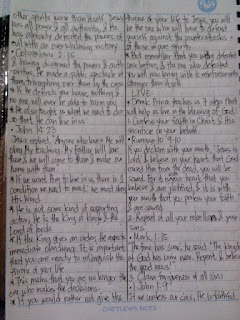 other spirits worse than itself. Jesus
has all power & all authority, & He
has already defeated the powers of
evil with an over whelming victory.
• Colossians 2:15
& having disarmed the powers & auth-
orities, He made a public spectacle of
them, triumphing over them by the cross
If He defends your house, nothing &
no one will ever be able to harm you
He also taught us what we need to do
so that He can live in us
• John 14:23
Jesus replied, Anyone who loves me will
obey my teaching. My Father will love
them & we will come to them & make our
home with them.
If we want Him to live in us, there is a
condition we need to meet. We must obey
His Word.
He is not some kind of supporting
actor, He is the King of kings & the
Lord of lords.
If the King gives an order, He expects
immediate obedience. It is important
that you are ready to relinquish the
throne of your life
This means that you are no longer the
one who makes the decisions.
If you would rather not give the
throne of your life to Jesus, you will
be the one who will have to defend
yourself against the counterattacks
of those impure spirits.
But remember that you were defeated
once before, & the one who defeated
you will now bring with it reinforcements
stronger than itself.
LIVE
Derek Prince teaches us 7 steps that
will help us live in the blessing of God.
1. Confess your faith in Christ & His
sacrifice on your behalf.
• Romans 10:9-10
If you declare with your mouth, "Jesus is
Lord" & believe in your heart that God
raised Him from the dead, you will be
saved. For it is with your heart that you
believe & are justified, & it is with
your mouth that you profess your faith
& are saved.
2. Repent of all your rebellion & your
sins.
• Mark 1:15
"The time has come," he said. "The kingdom
of God has come near. Repent & believe
the good news!"
3. Claim forgiveness of all sins
• John 1:9
If we confess our sins, He is faithful